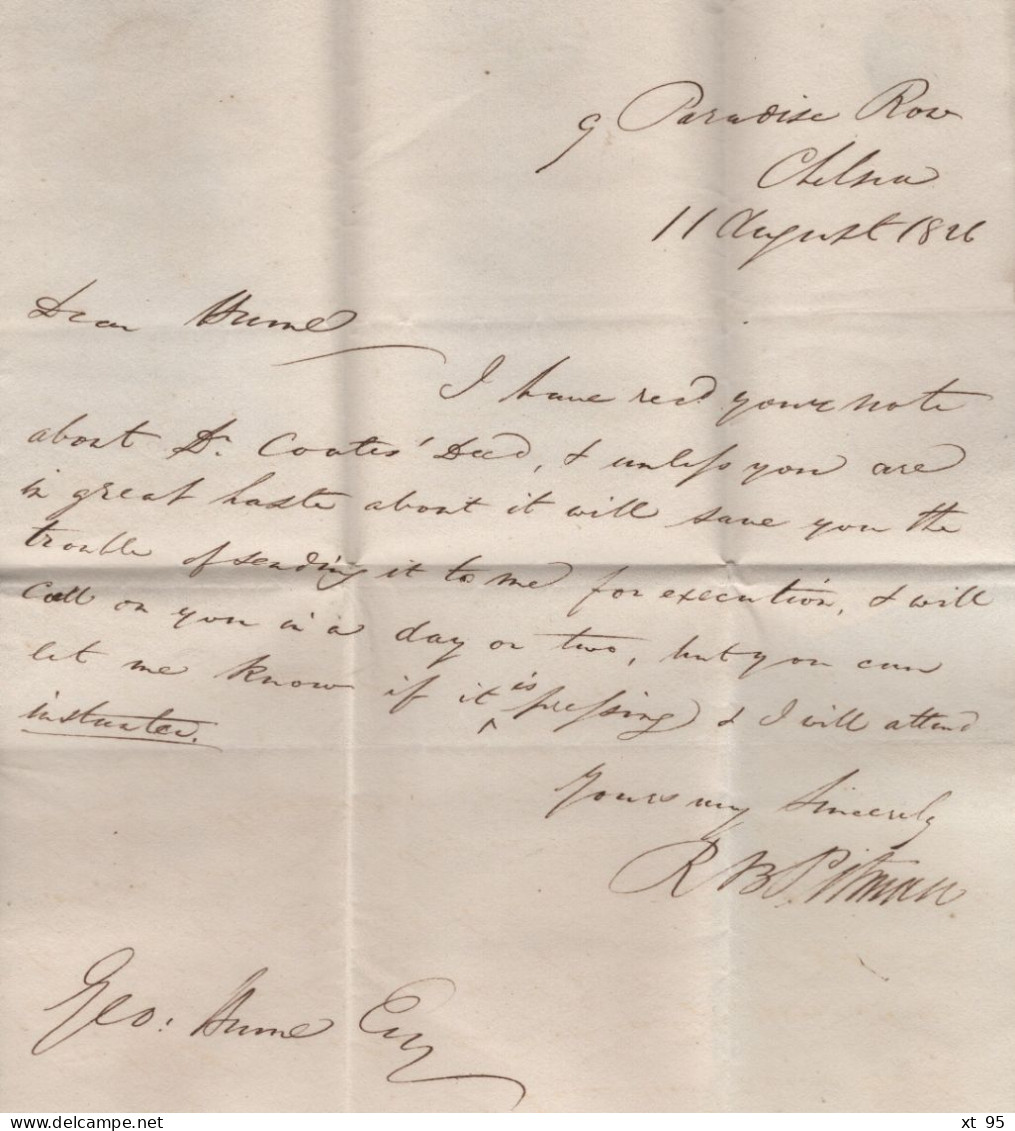 9 Paradise Row
Chelsea
11 August 1826
Dear Hume
I have recd. your note
about Dr. Coates' Deed, & unless you are
in great haste about it will save you the
trouble of sending it to me for execution, & will
Call on you in a day or two, but you can
let me know if it is pressing & I will attend
instanter.
Yours my Sincerely
R B Pitman
Geo: Hume Esq
xt 95